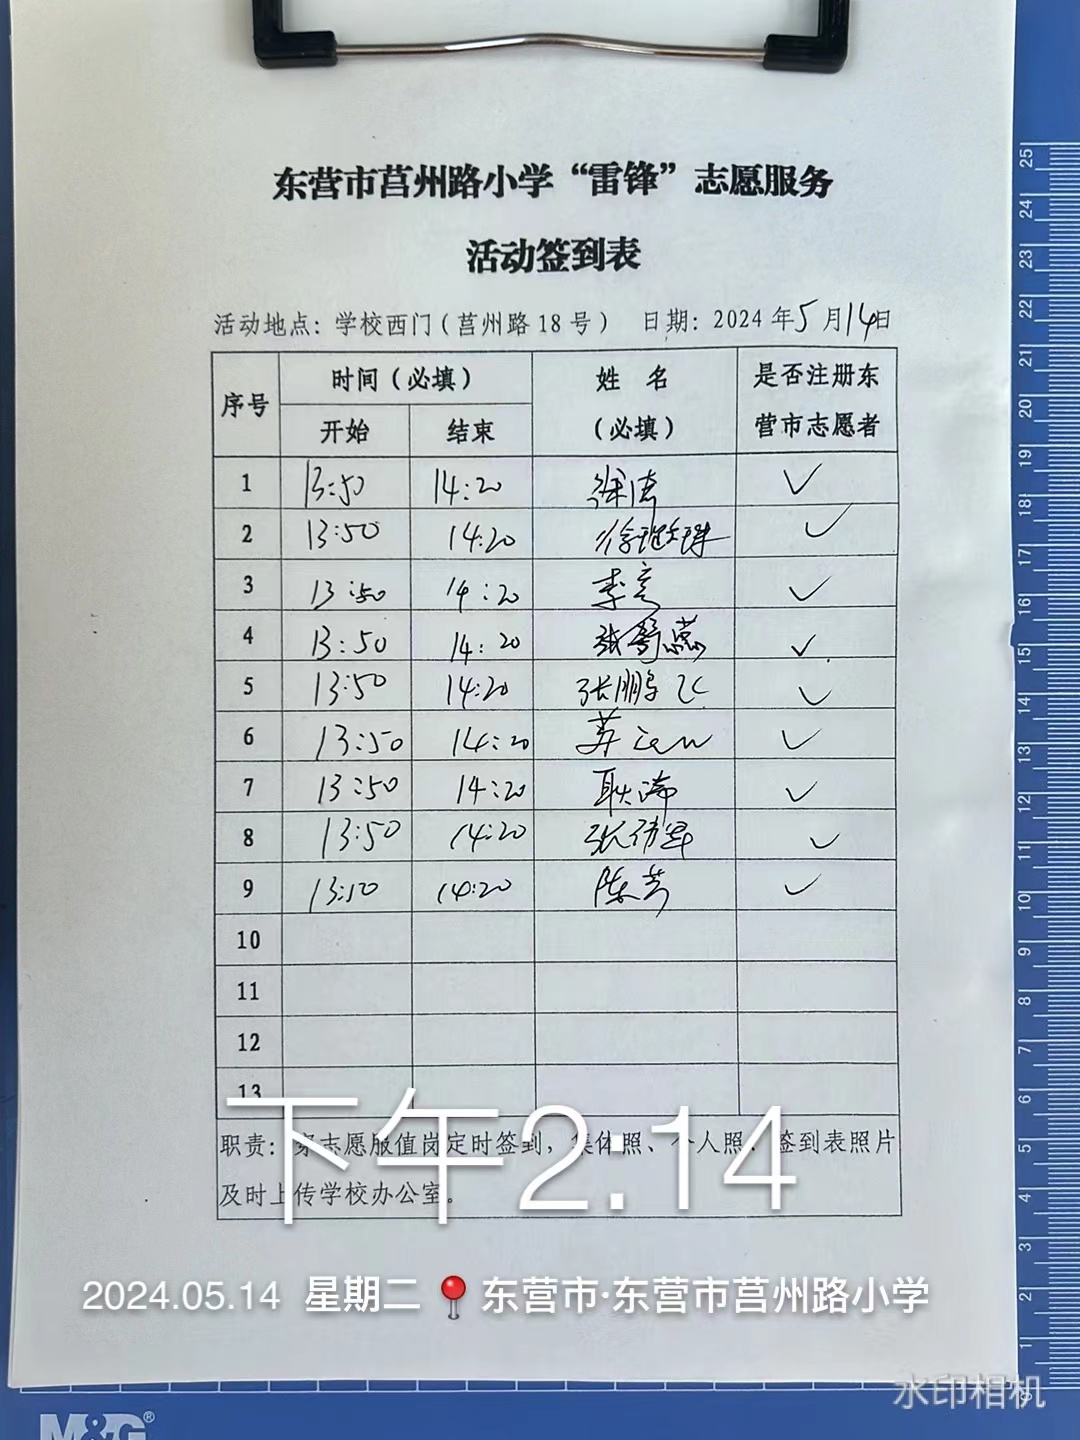 东营市莒州路小学“雷锋”志愿服务
活动签到表
活动地点：学校西门（莒州路18号） 日期：2024年5月14日
序号 时间（必填） 姓 名 是否注册东
开始 结束 （必填） 营市志愿者
1 13:50 14:20 徐洁 ✓
2 13:50 14:20 ✓
3 13:50 14:20 李彦 ✓
4 13:50 14:20 ✓
5 13:50 14:20 张鹏飞 ✓
6 13:50 14:20 ✓
7 13:50 14:20 ✓
8 13:50 14:20 ✓
9 13:50 14:20 陈芳 ✓
10
11
12
13
职责：穿志愿服值岗定时签到，集体照、个人照、签到表照片
及时上传学校办公室。
下午2:14
2024.05.14 星期二 东营市·东营市莒州路小学
水印相机
M&G®
25
24
23
22
21
20
19
18
17
16
15
14
13
12
11
10
9
8
7
6
5
4
3
2
1